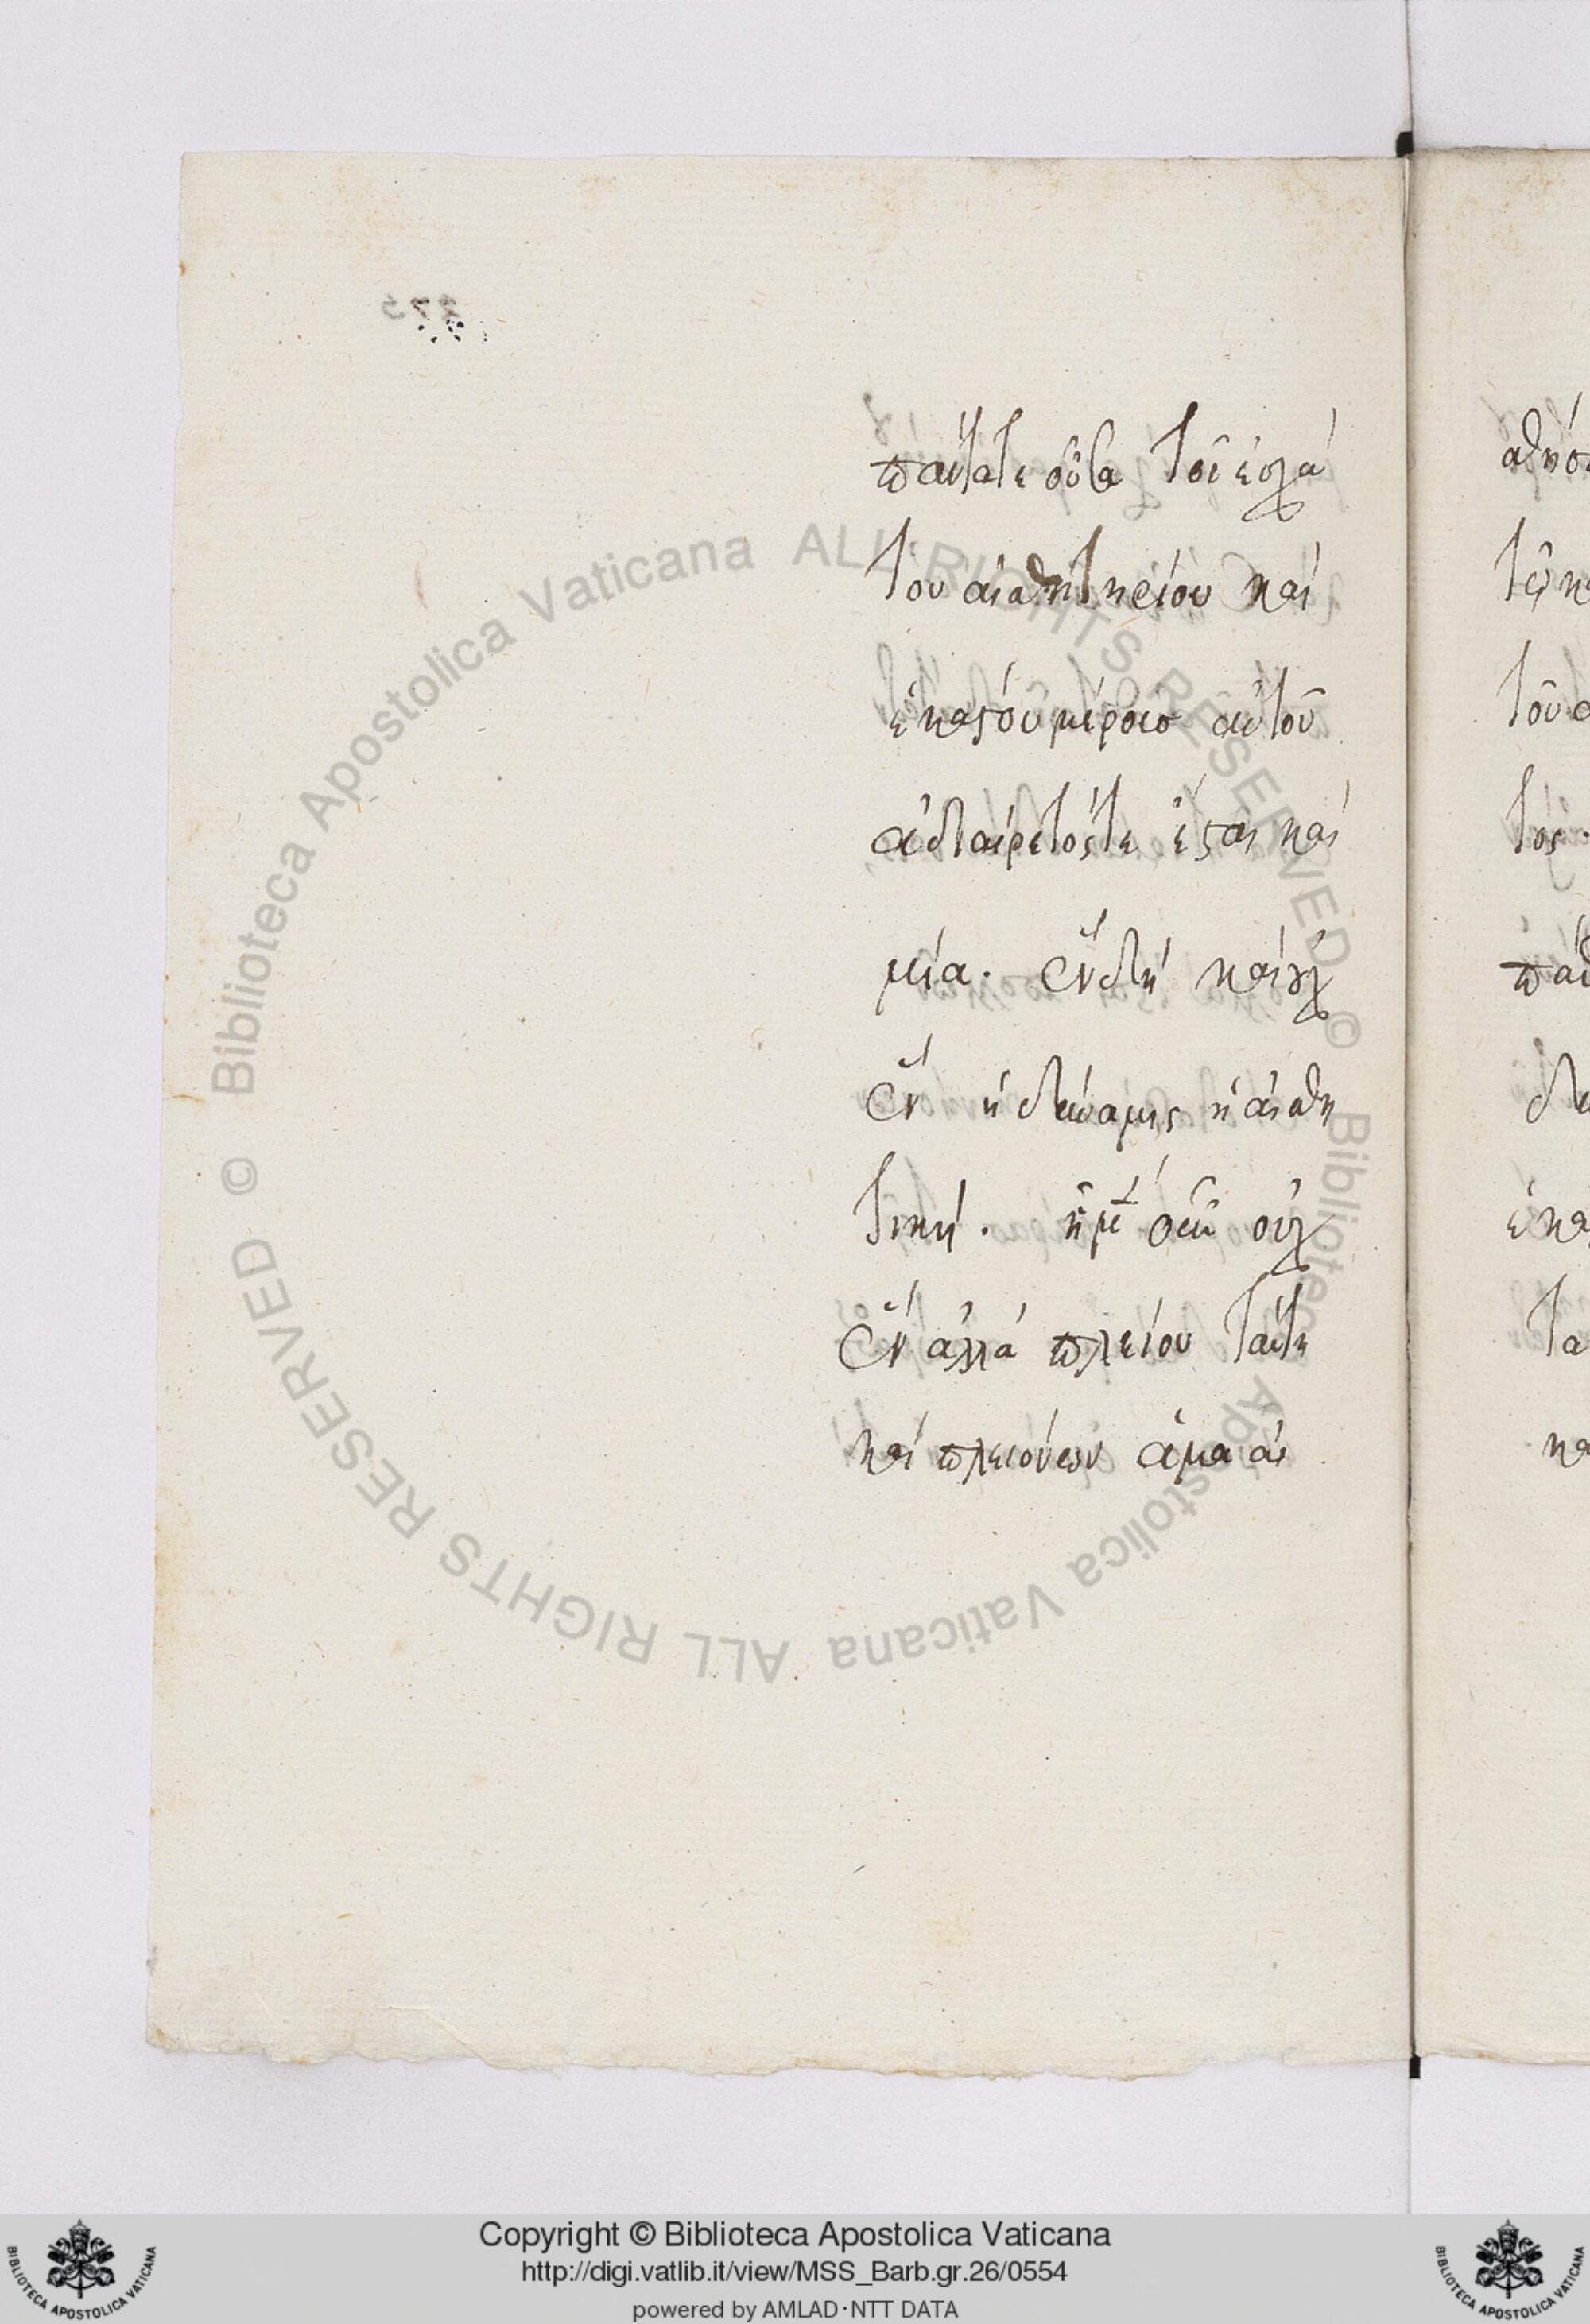 πάντατε οὖσα τοῦ ἐσχά
του αἰσθητηρίου καὶ
ἑκάστου μέρους αὐτοῦ
ἀδιαίρετός τε ἔσται καὶ
μία. ἓν δὴ καὶ οὐχ
ἓν ἡ δύναμις ἡ αἰσθη
τική. ᾗ μὲν οὖν οὐχ
ἓν ἀλλὰ πλείου ταύτῃ
καὶ πλειόνων ἅμα αἰ
275
Biblioteca Apostolica Vaticana ALL RIGHTS RESERVED © Biblioteca Apostolica Vaticana ALL RIGHTS RESERVED ©
Copyright © Biblioteca Apostolica Vaticana
http://digi.vatlib.it/view/MSS_Barb.gr.26/0554
powered by AMLAD·NTT DATA
BIBLIOTECA APOSTOLICA VATICANA
BIBLIOTECA APOSTOLICA VATICANA